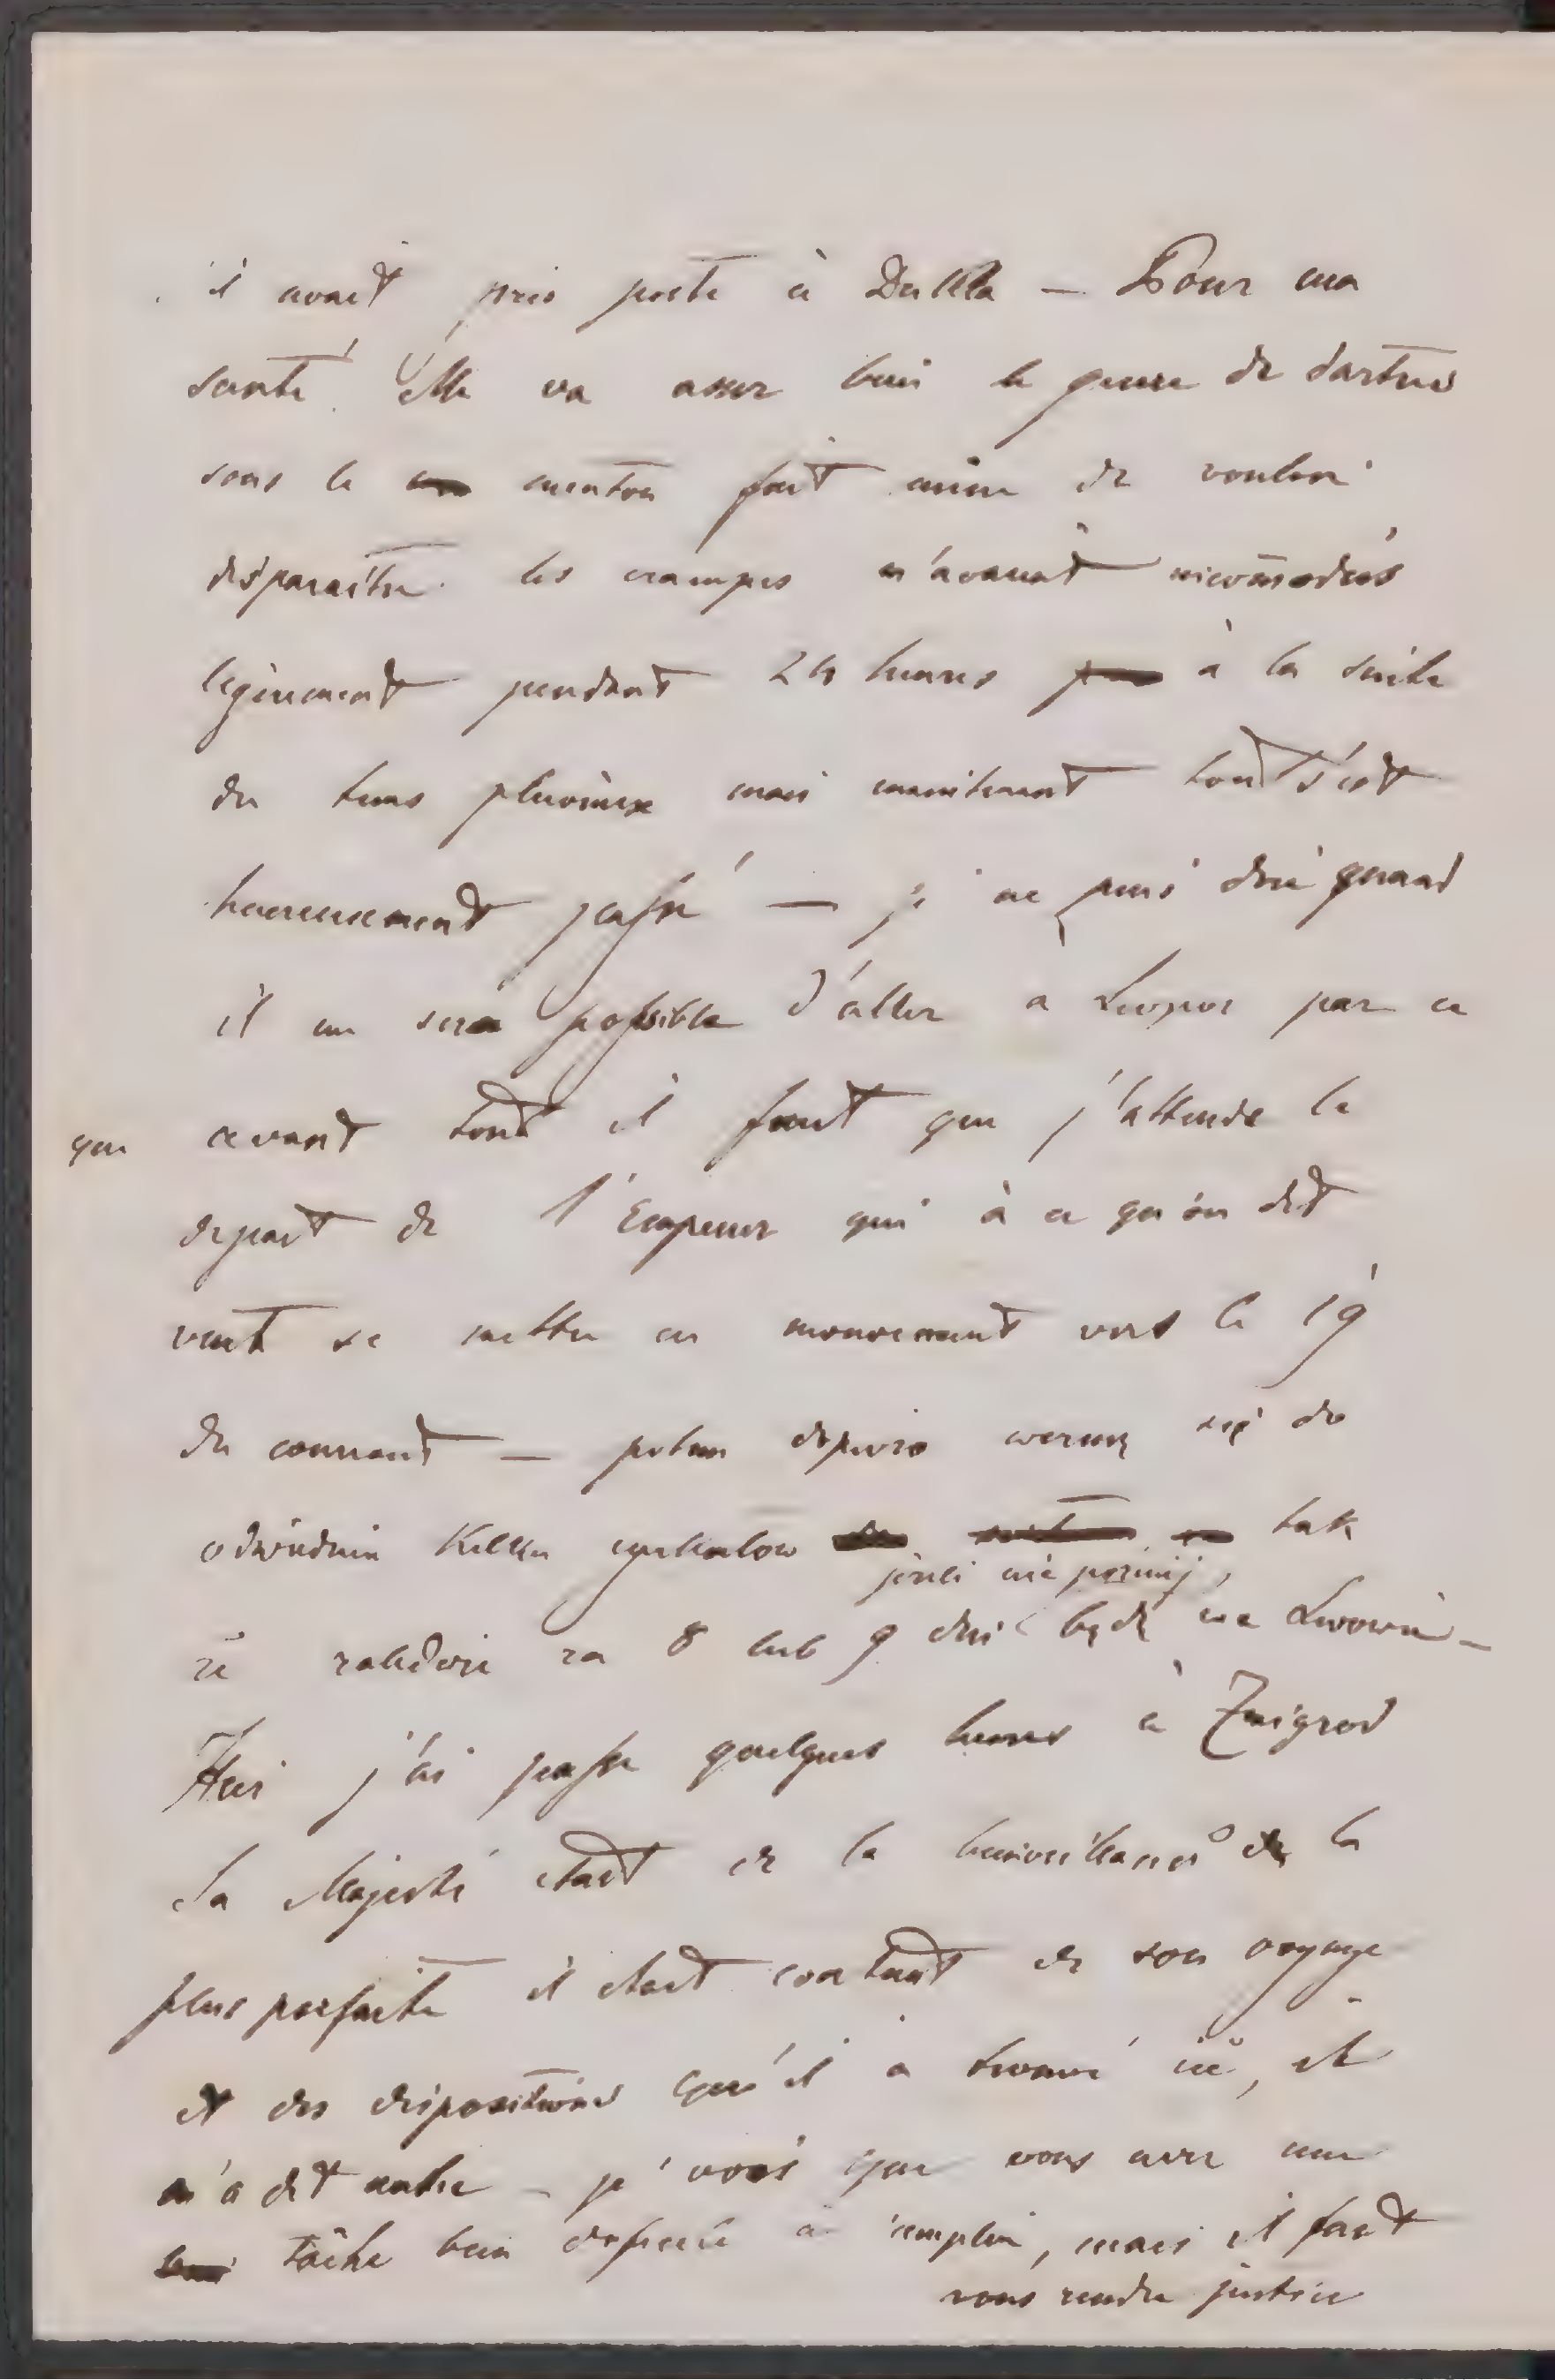 il avait pris poste à Dukla — Pour ma
santé elle va assez bien le genre de dartres
sous le menton fait mine de vouloir
disparaître les crampes m'avaient incomodés
legèrement pendant 24 heures à la suite
du tems pluvieux mais maintenant tout s'est
heureusement passé — je ne puis dire quand
il me sera possible d'aller a Leopol par ce
que avant tout il faut que j'attende le
depart de l'Empereur qui à ce qu'on dit
veut se mettre en mouvement vers le 19
du courant — potem dopiero wezmę się do
odwiedzin kilku cyrkułow tak
że zaledwie za 8 lub 9 dni jeżeli nie poźniej, będę we Lwowie —
Hier j'ai passé quelques heures à Zmigrod
Sa Majesté etait de la bienveillance la
plus parfaite il etait contant de son voyage
et des dispositions qu'il a trouvé ici, il
m'a dit entre — je vois que vous avez une
tâche bien deficile à remplir, mais il faut
vous rendre justice